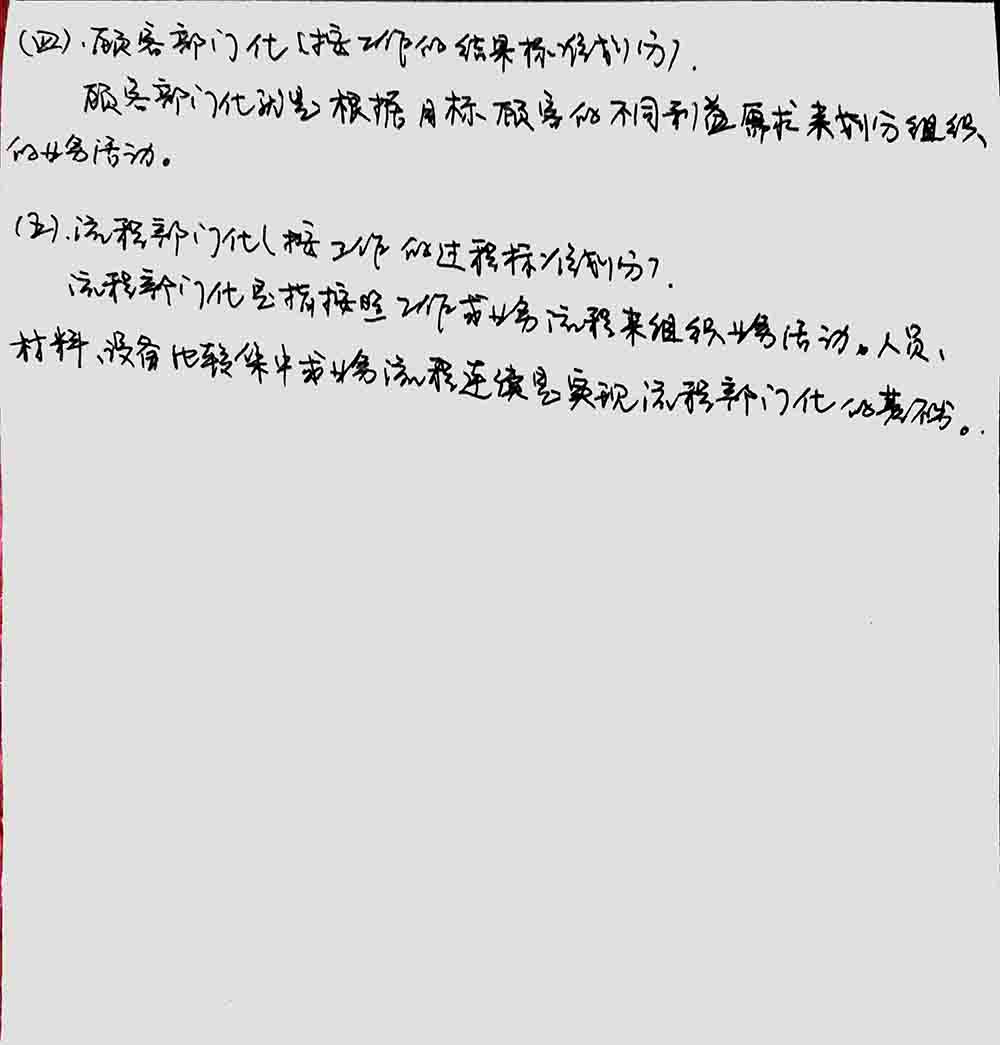 (四).顾客部门化(按工作的结果标准划分).
顾客部门化就是根据目标顾客的不同利益需求来划分组织
的业务活动。
(五).流程部门化(按工作的过程标准划分).
流程部门化是指按照工作或业务流程来组织业务活动。人员、
材料、设备比较集中或业务流程连续是实现流程部门化的基础。